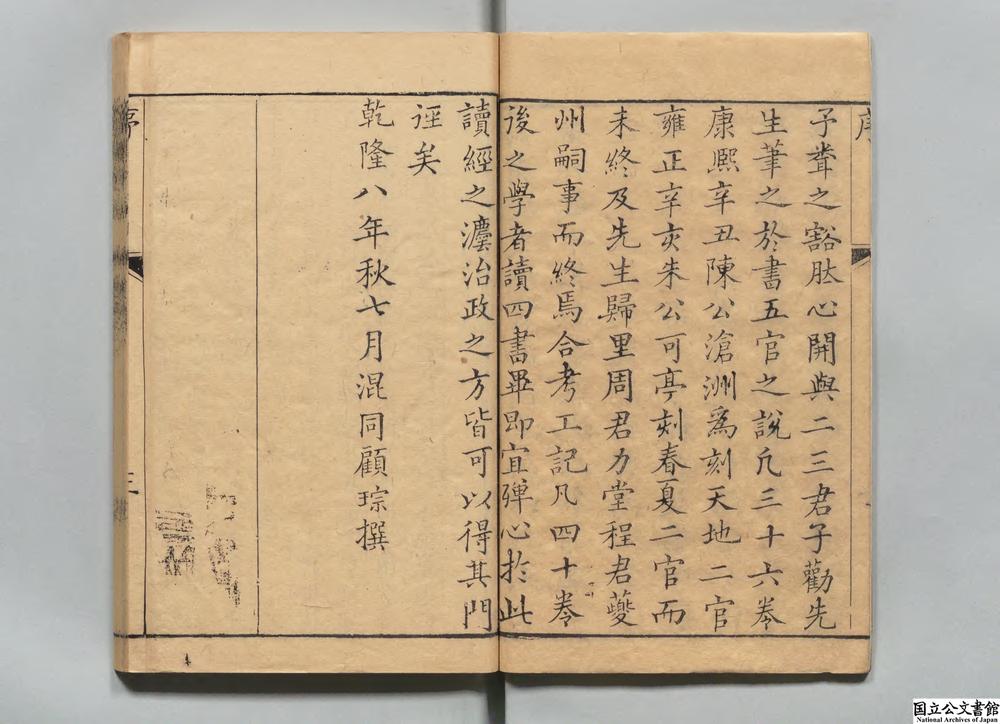 序
子聾之豁肰心開與二三君子勸先
生筆之於書五官之說凢三十六卷
康熙辛丑陳公滄洲爲刻天地二官
雍正辛亥朱公可亭刻春夏二官而
未終及先生歸里周君力堂程君夔
州嗣事而終焉合考工記凡四十卷
後之學者讀四書畢即宜殫心於此
讀經之灋治政之方皆可以得其門
逕矣
乾隆八年秋七月混同顧琮撰
序
三
国立公文書館
National Archives of Japan